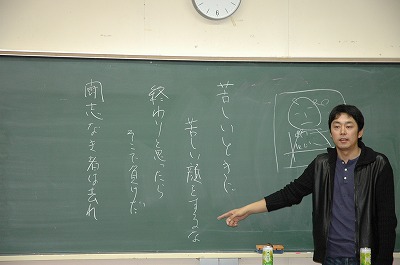 苦しいときに
苦しい顔をするな
終わりと思ったら
そこで負けだ
闘志なき者は去れ